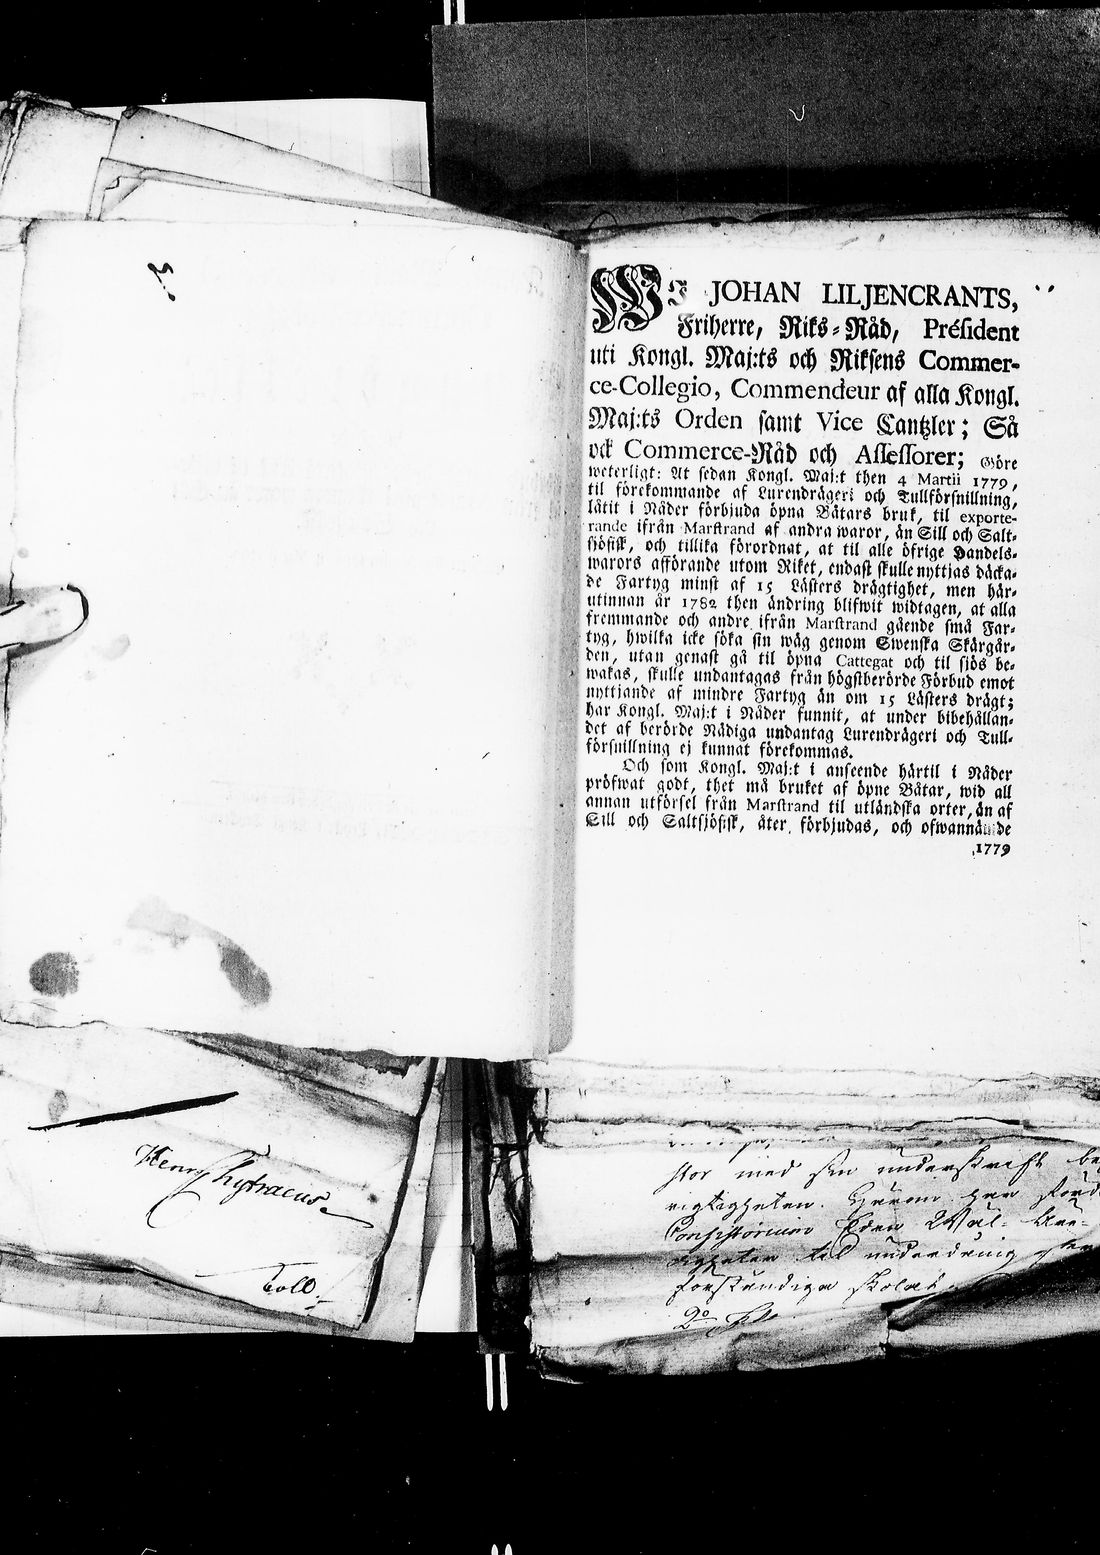 Henr Chytraeus
Coll.
WJ JOHAN LILJENCRANTS,
Friherre, Riks-Råd, Président
uti Kongl. Maj:ts och Riksens Commer-
ce-Collegio, Commendeur af alla Kongl.
Maj:ts Orden samt Vice Cantzler; Så
ock Commerce-Råd och Assessorer; Göre
weterligt: At sedan Kongl. Maj:t then 4 Martii 1779,
til förekommande af Lurendrägeri och Tullförsnillning,
låtit i Nåder förbjuda öpna Båtars bruk, til exporte-
rande ifrån Marstrand af andra waror, än Sill och Salt-
sjöfisk, och tillika förordnat, at til alle öfrige Handels-
warors afförande utom Riket, endast skulle nyttjas däcka-
de Fartyg minst af 15 Lästers drägtighet, men här-
utinnan år 1782 then ändring blifwit widtagen, at alla
fremmande och andre ifrån Marstrand gående små Far-
tyg, hwilka icke söka sin wäg genom Swenska Skärgår-
den, utan genast gå til öpna Cattegat och til sjös be-
wakas, skulle undantagas från högstberörde Förbud emot
nyttjande af mindre Fartyg än om 15 Lästers drägt;
har Kongl. Maj:t i Nåder funnit, at under bibehållan-
det af berörde Nådiga undantag Lurendrägeri och Tull-
försnillning ej kunnat förekommas.
Och som Kongl. Maj:t i anseende härtil i Nåder
pröfwat godt, thet må bruket af öpne Båtar, wid all
annan utförsel från Marstrand til utländska orter, än af
Sill och Saltsjöfisk, åter förbjudas, och ofwannämde
1779
stor med sin underskrift
rigtigheten.
Consistorium
til underdånig
förständiga
2o